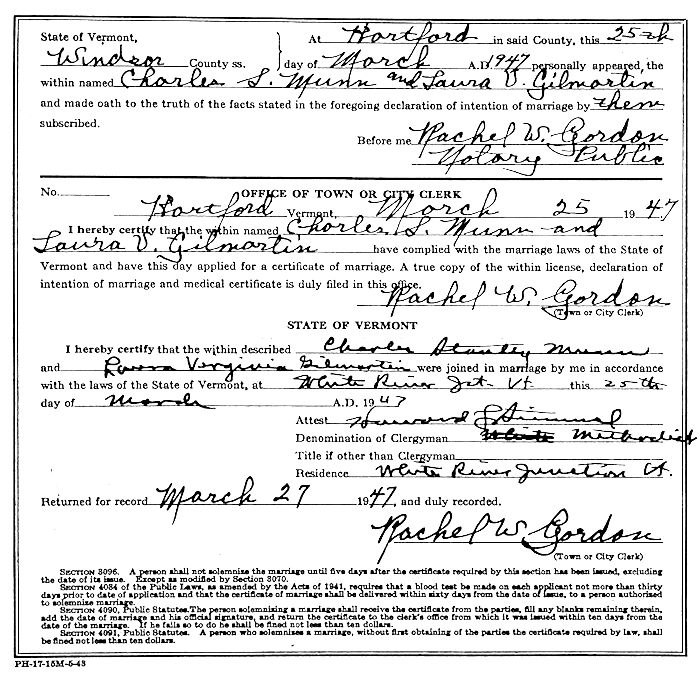 State of Vermont, At Hartford in said County, this 25th
Windsor County ss. day of March A.D. 1947 personally appeared, the
within named Charles S. Munn and Laura V. Gilmartin
and made oath to the truth of the facts stated in the foregoing declaration of intention of marriage by them
subscribed.
Before me Rachel W. Gordon
Notary Public
No. OFFICE OF TOWN OR CITY CLERK
Hartford Vermont, March 25 1947
I hereby certify that the within named Charles S. Munn and
Laura V. Gilmartin have complied with the marriage laws of the State of
Vermont and have this day applied for a certificate of marriage. A true copy of the within license, declaration of
intention of marriage and medical certificate is duly filed in this office.
Rachel W. Gordon
(Town or City Clerk)
STATE OF VERMONT
I hereby certify that the within described Charles Stanley Munn
and Laura Virginia Gilmartin were joined in marriage by me in accordance
with the laws of the State of Vermont, at White River Jct. Vt this 25th
day of March A.D. 1947
Attest
Denomination of Clergyman Methodist
Title if other than Clergyman
Residence White River Junction Vt.
Returned for record March 27 1947, and duly recorded.
Rachel W. Gordon
(Town or City Clerk)
SECTION 3096. A person shall not solemnise the marriage until five days after the certificate required by this section has been issued, excluding
the date of its issue. Except as modified by Section 3070.
SECTION 4084 of the Public Laws, as amended by the Acts of 1941, requires that a blood test be made on each applicant not more than thirty
days prior to date of application and that the certificate of marriage shall be delivered within sixty days from the date of issue, to a person authorized
to solemnize marriage.
SECTION 4090, Public Statutes. The person solemnizing a marriage shall receive the certificate from the parties, fill any blanks remaining therein,
add the date of marriage and his official signature, and return the certificate to the clerk's office from which it was issued within ten days from the
date of the marriage. If he fails so to do he shall be fined not less than ten dollars.
SECTION 4091, Public Statutes. A person who solemnizes a marriage, without first obtaining of the parties the certificate required by law, shall
be fined not less than ten dollars.
PH-17-15M-5-43